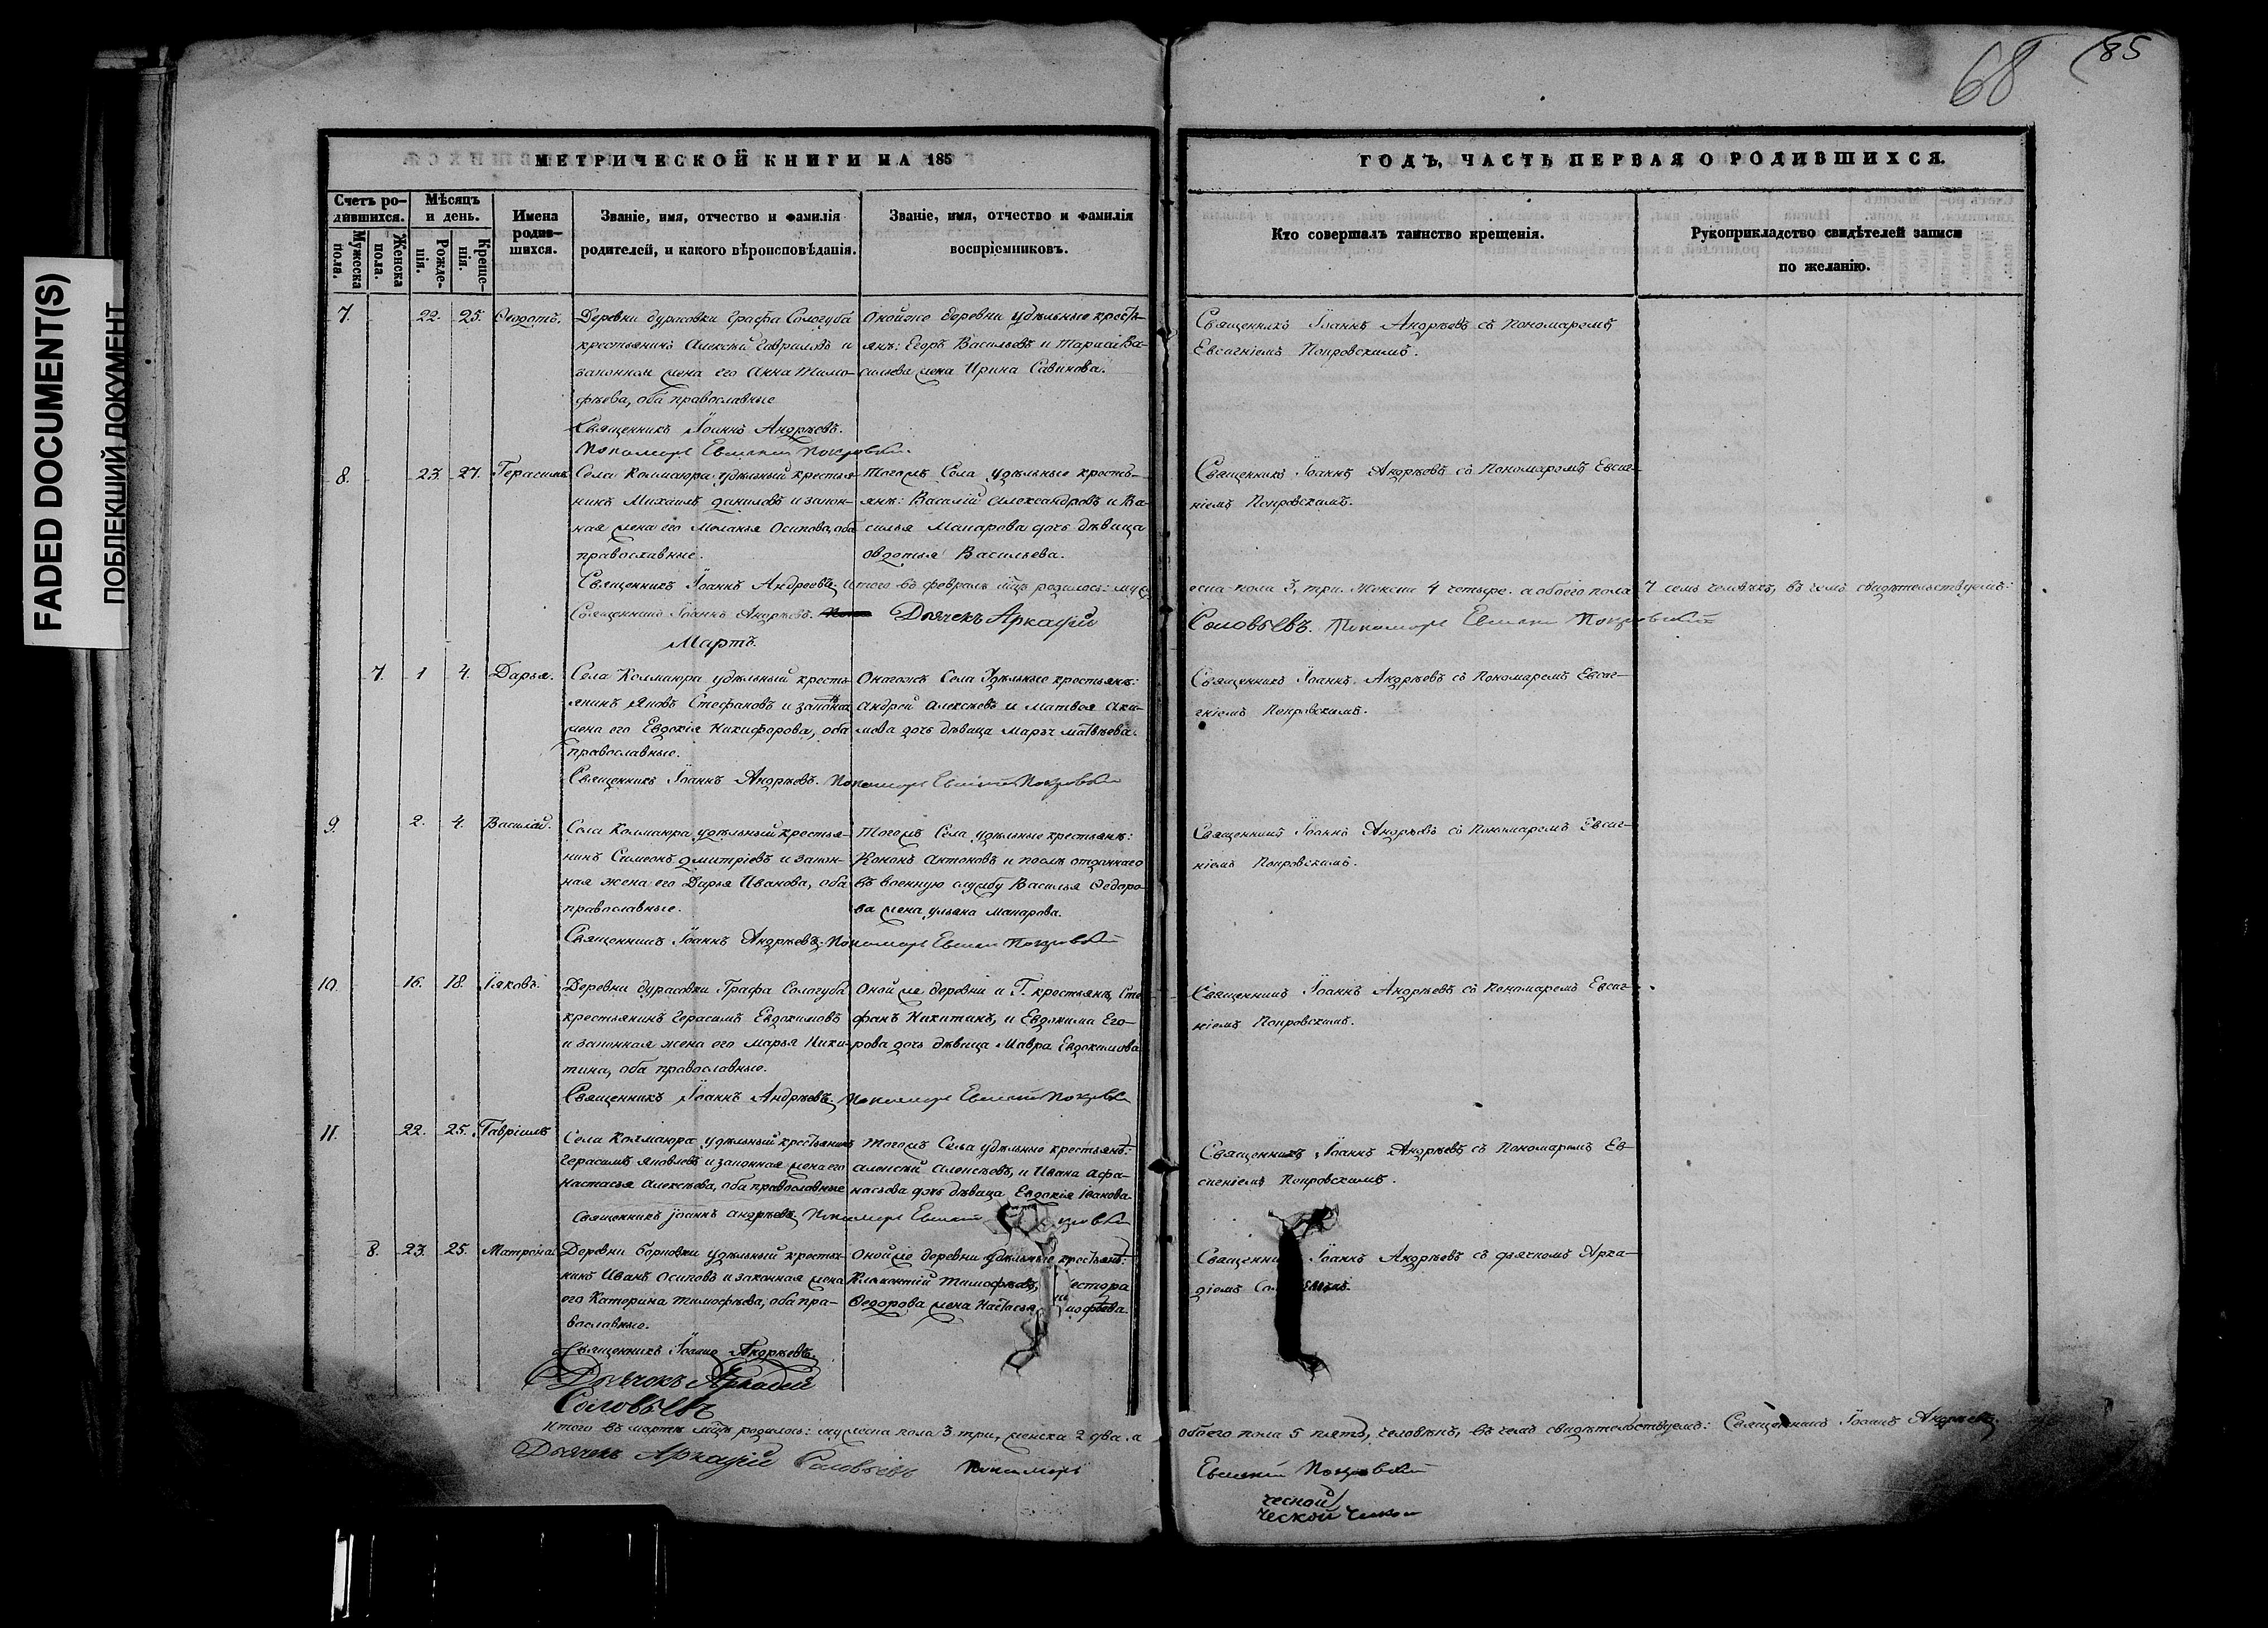 68 85
FADED DOCUMENT(S)
ПОБЛЕКШИЙ ДОКУМЕНТ
МЕТРИЧЕСКОЙ КНИГИ НА 185
ГОДЪ, ЧАСТЬ ПЕРВАЯ О РОДИВШИХСЯ.
Счетъ ро-
дившихся.
Мужеска пола.
Женска пола.
Мѣсяцъ
и день.
Рожде-
нія.
Креще-
нія.
Имена
родив-
шихся.
Званіе, имя, отчество и фамилія
родителей, и какого вѣроисповѣданія.
Званіе, имя, отчество и фамилія
воспріемниковъ.
Кто совершалъ таинство крещенія.
Рукоприкладство свидѣтелей записи
по желанію.
7. 22. 25. Ѳеодотъ.
Деревни Дурасовки Графа Сологуба
крестьянинъ Алексѣй Гавриловъ и
законная жена его Анна Тимо-
фѣева, оба православные
Священникъ Іоаннъ Андрѣевъ.
Пономарь Евсигній Покровскій
Оной же деревни удѣльные кресть-
янъ: Егоръ Васильевъ и Тарасія Ва-
сильева жена Ирина Савинова.
Священникъ Іоаннъ Андрѣевъ съ Пономаремъ
Евсигніемъ Покровскимъ.
8. 23. 27. Герасимъ
Села Колмаюра удѣльный крестья-
нинъ Михаилъ Даниловъ и закон-
ная жена его Меланья Осипова, оба
православные.
Священникъ Іоаннъ Андреевъ.
Тогожъ Села удѣльные кресть-
янъ: Василій Александровъ и Ва-
силья Макарова дочь дѣвица
Овдотья Васильева.
Священникъ Іоаннъ Андрѣевъ съ Пономаремъ Евсиг-
ніемъ Покровскимъ.
Итого въ февралѣ мцѣ родилось: муж
еска пола 3, три. Женска 4 четыре. а обоего пола 7 семь человѣкъ, въ чемъ свидѣтельствуемъ:
Священникъ Іоаннъ Андрѣевъ. Дьячекъ Аркадій
Соловьевъ. Пономарь Евсигній Покровскій
Мартъ.
7. 1 4. Дарья.
Села Колмаюра удѣльный кресть-
янинъ Яковъ Стефановъ и законная
жена его Евдокія Никифорова, оба
православные.
Священникъ Іоаннъ Андрѣевъ. Пономарь Евсигній Покровскій
Оногожъ Села Удѣльные крестьянъ:
Андрей Алексѣевъ и Матвея Аки-
мова дочь дѣвица Марья Матвѣева.
Священникъ Іоаннъ Андрѣевъ съ Пономаремъ Евсиг-
ніемъ Покровскимъ.
9. 2. 4. Василій.
Села Колмаюра удѣльный крестья-
нинъ Симеонъ Дмитріевъ и закон-
ная жена его Дарья Иванова, оба
православные.
Священникъ Іоаннъ Андрѣевъ. Пономарь Евсигній Покровскій
Тогожъ Села удѣльные крестьянъ:
Кононъ Антоновъ и послѣ отданнаго
въ военную службу Василья Ѳедоро-
ва жена Ульяна Макарова.
Священникъ Іоаннъ Андрѣевъ съ Пономаремъ Евсиг-
ніемъ Покровскимъ.
10. 16. 18. Іаковъ.
Деревни Дурасовки Графа Сологуба
крестьянинъ Герасимъ Евдокимовъ
и законная жена его Марья Ники-
тина, оба православные.
Священникъ Іоаннъ Андрѣевъ. Пономарь Евсигній Покровскій
Оной же деревни и Г. крестьянъ, Сте-
фанъ Никитинъ, и Евдокима Его-
рова дочь дѣвица Мавра Евдокимова
Священникъ Іоаннъ Андрѣевъ съ Пономаремъ Евсиг-
ніемъ Покровскимъ.
11. 22. 25. Гавріилъ
Села Колмаюра удѣльный крестьянинъ
Герасимъ Яковлевъ и законная жена его
Настасья Алексѣева, оба православные
Священникъ Іоаннъ Андрѣевъ. Пономарь Евсигній
Тогожъ Села удѣльные крестьянъ:
Алексѣй Алексѣевъ, и Ивана Афа-
насьева дочь дѣвица Евдокія Іванова.
Священникъ Іоаннъ Андрѣевъ съ Пономаремъ Ев-
сигніемъ Покровскимъ.
8. 23. 25. Матрона
Деревни Борковки удѣльный крестья-
нинъ Иванъ Осиповъ и законная жена
его Катерина Тимофѣева, оба пра-
вославные.
Священникъ Іоаннъ Андрѣевъ.
Дьячокъ Аркадей
Соловьевъ
Оной же деревни Удѣльные крестьянъ:
Климентій Тимофѣевъ, естора
Ѳедорова жена Настасья мофѣева.
Священни Іоаннъ Андрѣевъ съ дьячкомъ Арка-
діемъ Сол
Итого въ мартѣ мцѣ родилось: мужеска пола 3 три, женска 2 два. а
обоего пола 5 пять, человѣкъ, въ чемъ свидѣтельствуемъ: Священникъ Іоаннъ Андрѣевъ.
Дьячекъ Аркадій Соловьевъ Пономарь
Евсигній Покровскій
ческой
ческой